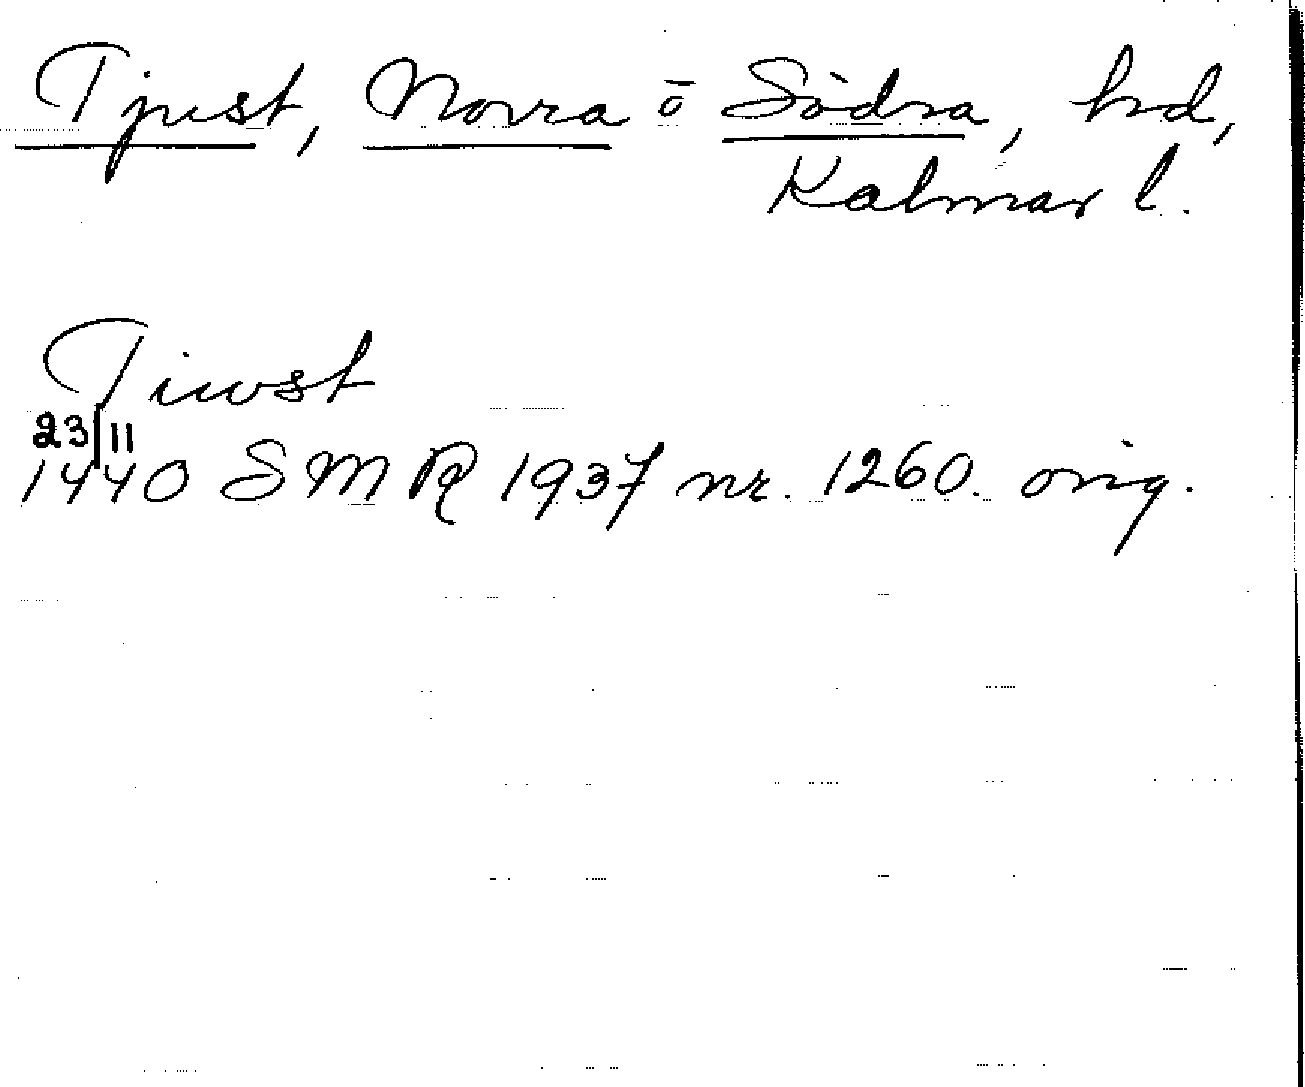 Tjust, Norra ō Södra, hd,
Kalmar l.
Tiwst
23/11
1440 SMR 1937 nr. 1260. orig.